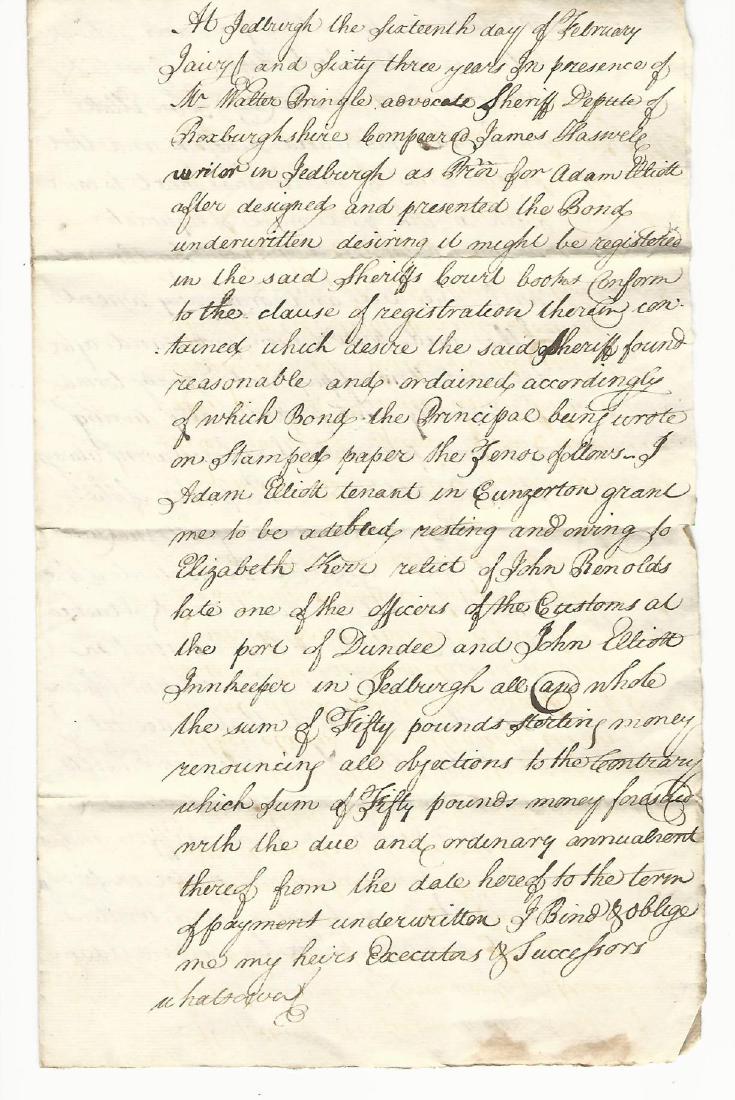 At Jedburgh the Sixteenth day of February
Jaivyᶜ and Sixty three years In presence of
Mr Walter Pringle advocate Sheriff Depute of
Roxburghshire Compeared James Haswell
writer in Jedburgh as Prõr for Adam Elliott
after designed and presented the Bond
underwritten desiring it might be registered
in the said Sheriffs Court books Conform
to the clause of registration therein con-
-tained which desire the said Sheriff found
reasonable and ordained accordingly
of which Bond the Principal being wrote
on Stamped paper the Tenor follows.. I
Adam Elliott tenant in grant
me to be adebted resting and owing to
Elizabeth Kerr relict of John Renolds
late one of the officers of the Customs at
the port of Dundee and John Elliott
Innkeeper in Jedburgh all and whole
the sum of Fifty pounds sterling money
renouncing all objections to the Contrary
which Sum of Fifty pounds money foresaid
with the due and ordinary annualrent
thereof from the date hereof to the term
of payment underwritten I Bind & oblige
me my heirs Executors & Successors
whatsoever